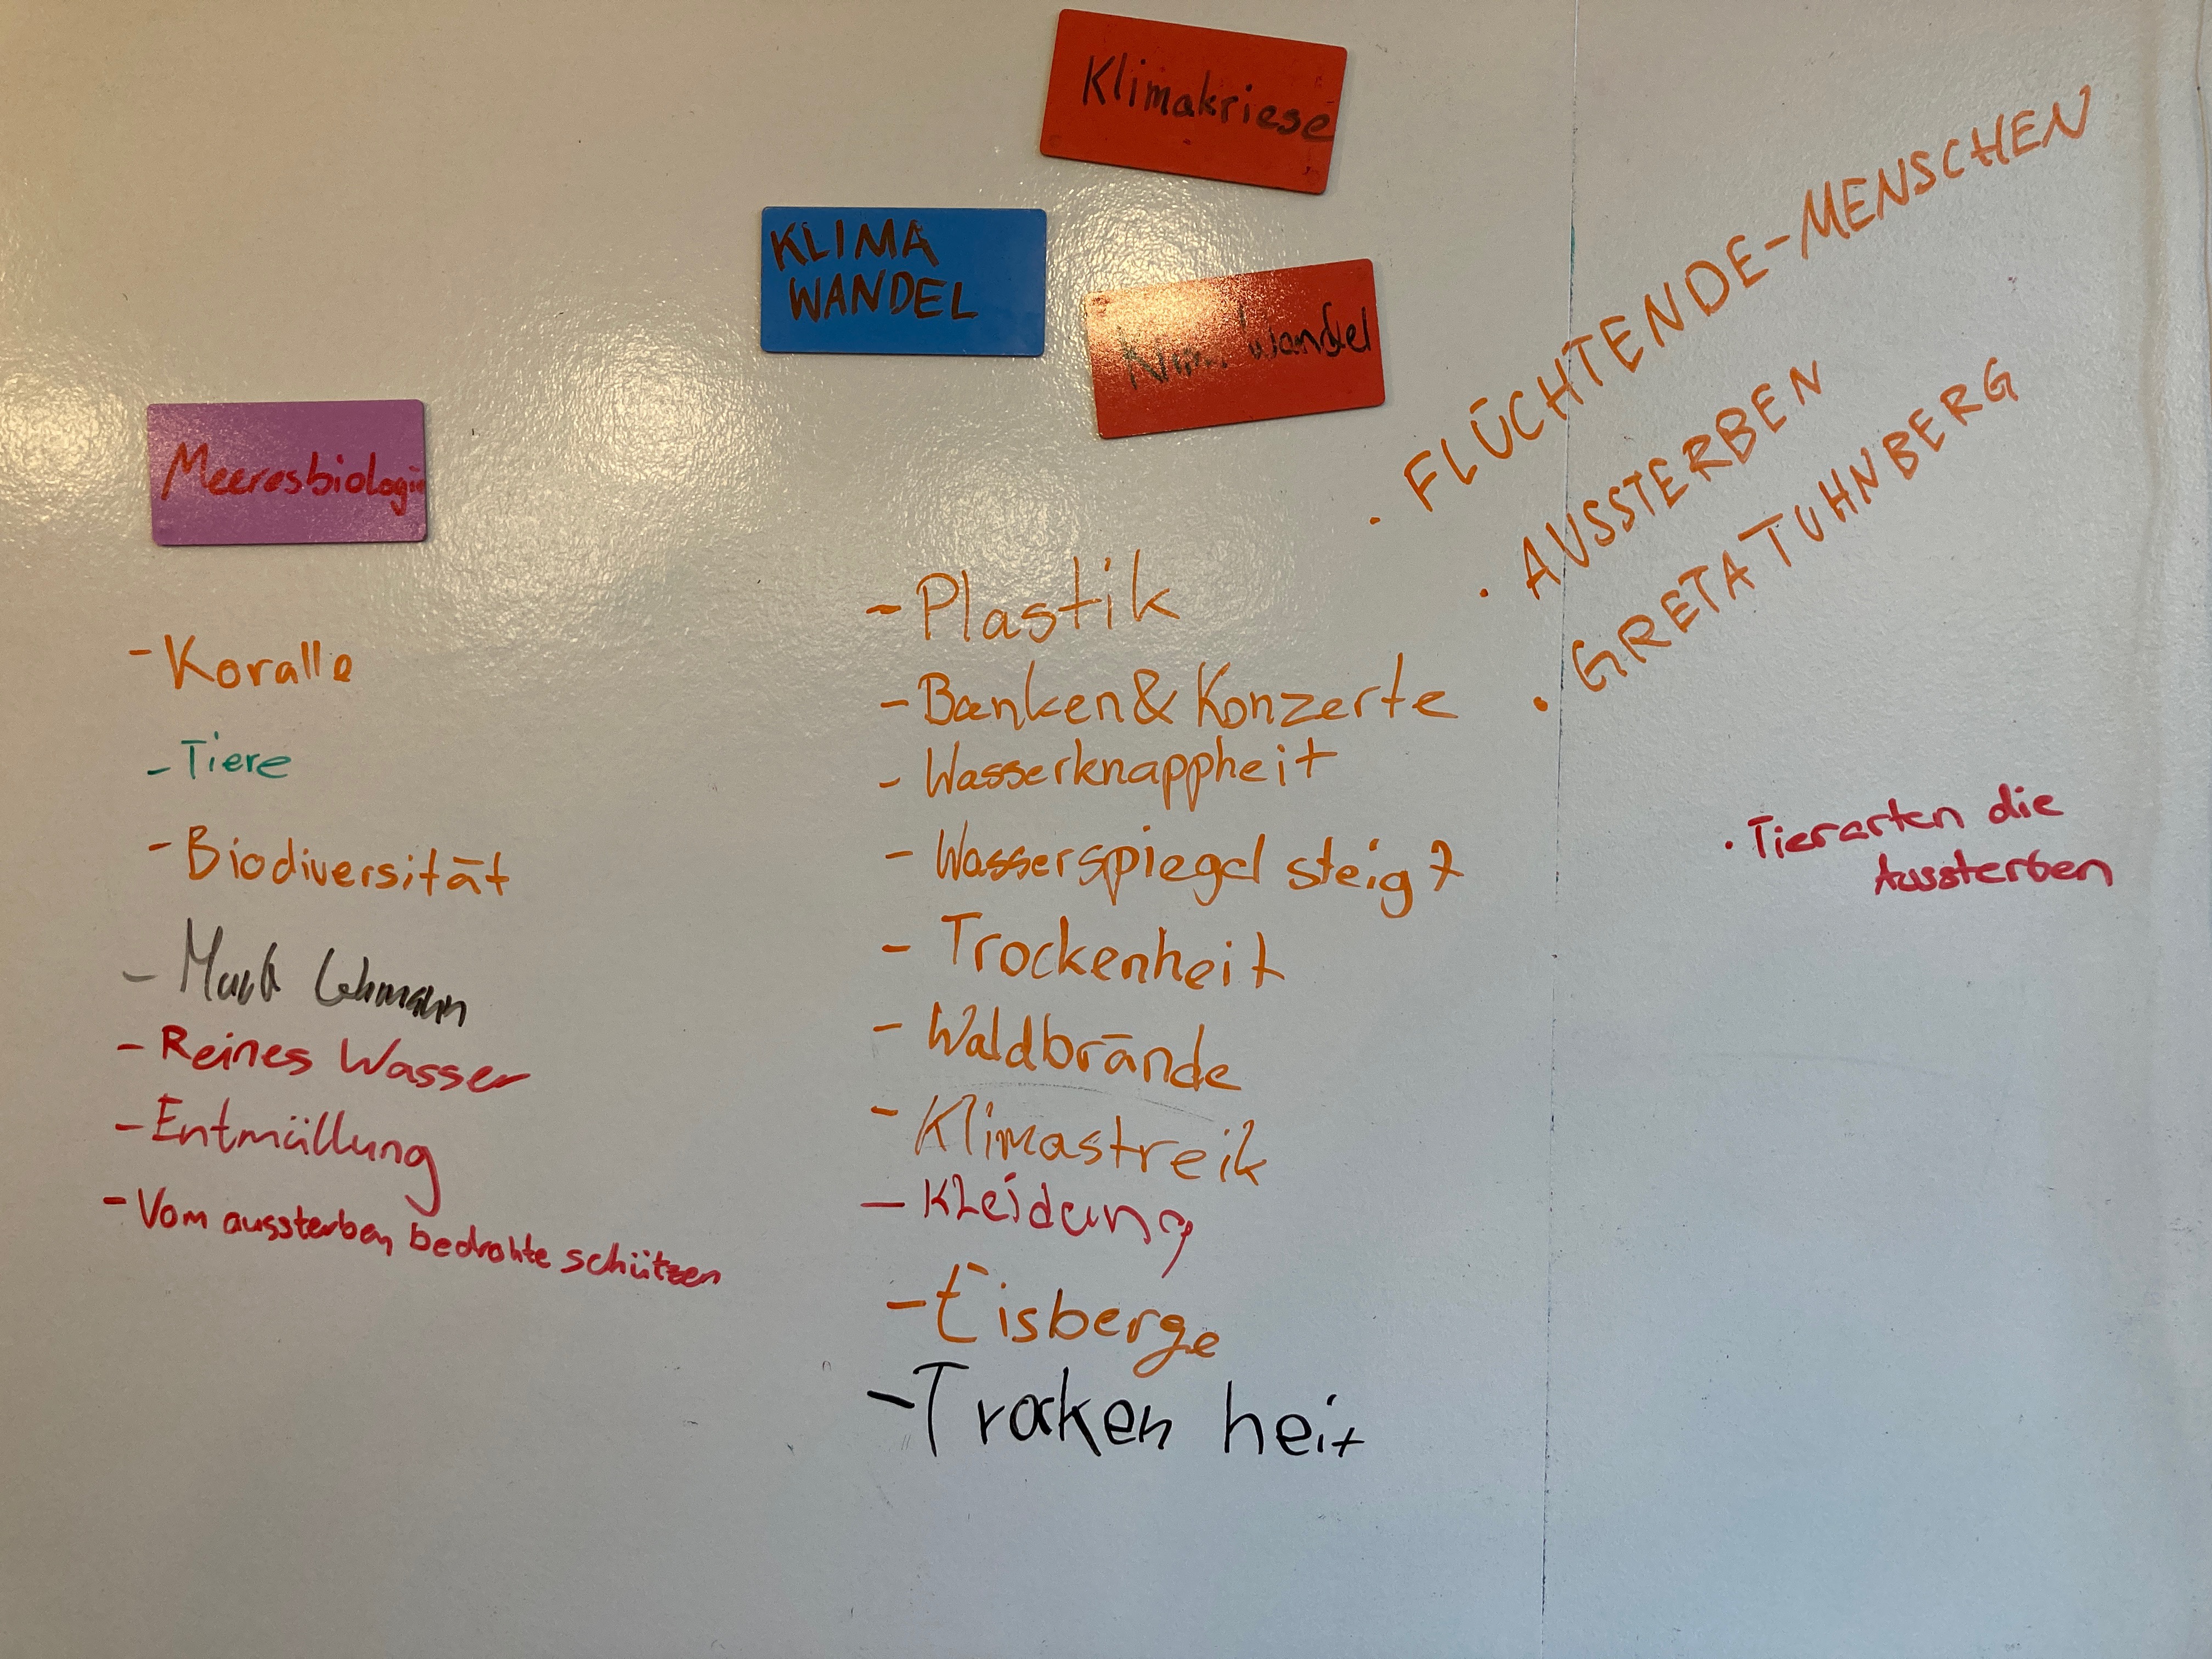 Klimakriese
KLIMA
WANDEL
wandel
Meeresbiologie
- Koralle
- Tiere
- Biodiversität
- Lehmann
- Reines Wasser
- Entmüllung
- Vom aussterben bedrohte schützen
- Plastik
- Banken & Konzerte
- Wasserknappheit
- Wasserspiegel steigt
- Trockenheit
- Waldbrände
- Klimastreik
- Kleidung
- Eisberge
- Trocken heit
· FLÜCHTENDE-MENSCHEN
· AUSSTERBEN
· GRETA TUHNBERG
· Tierarten die
Aussterben